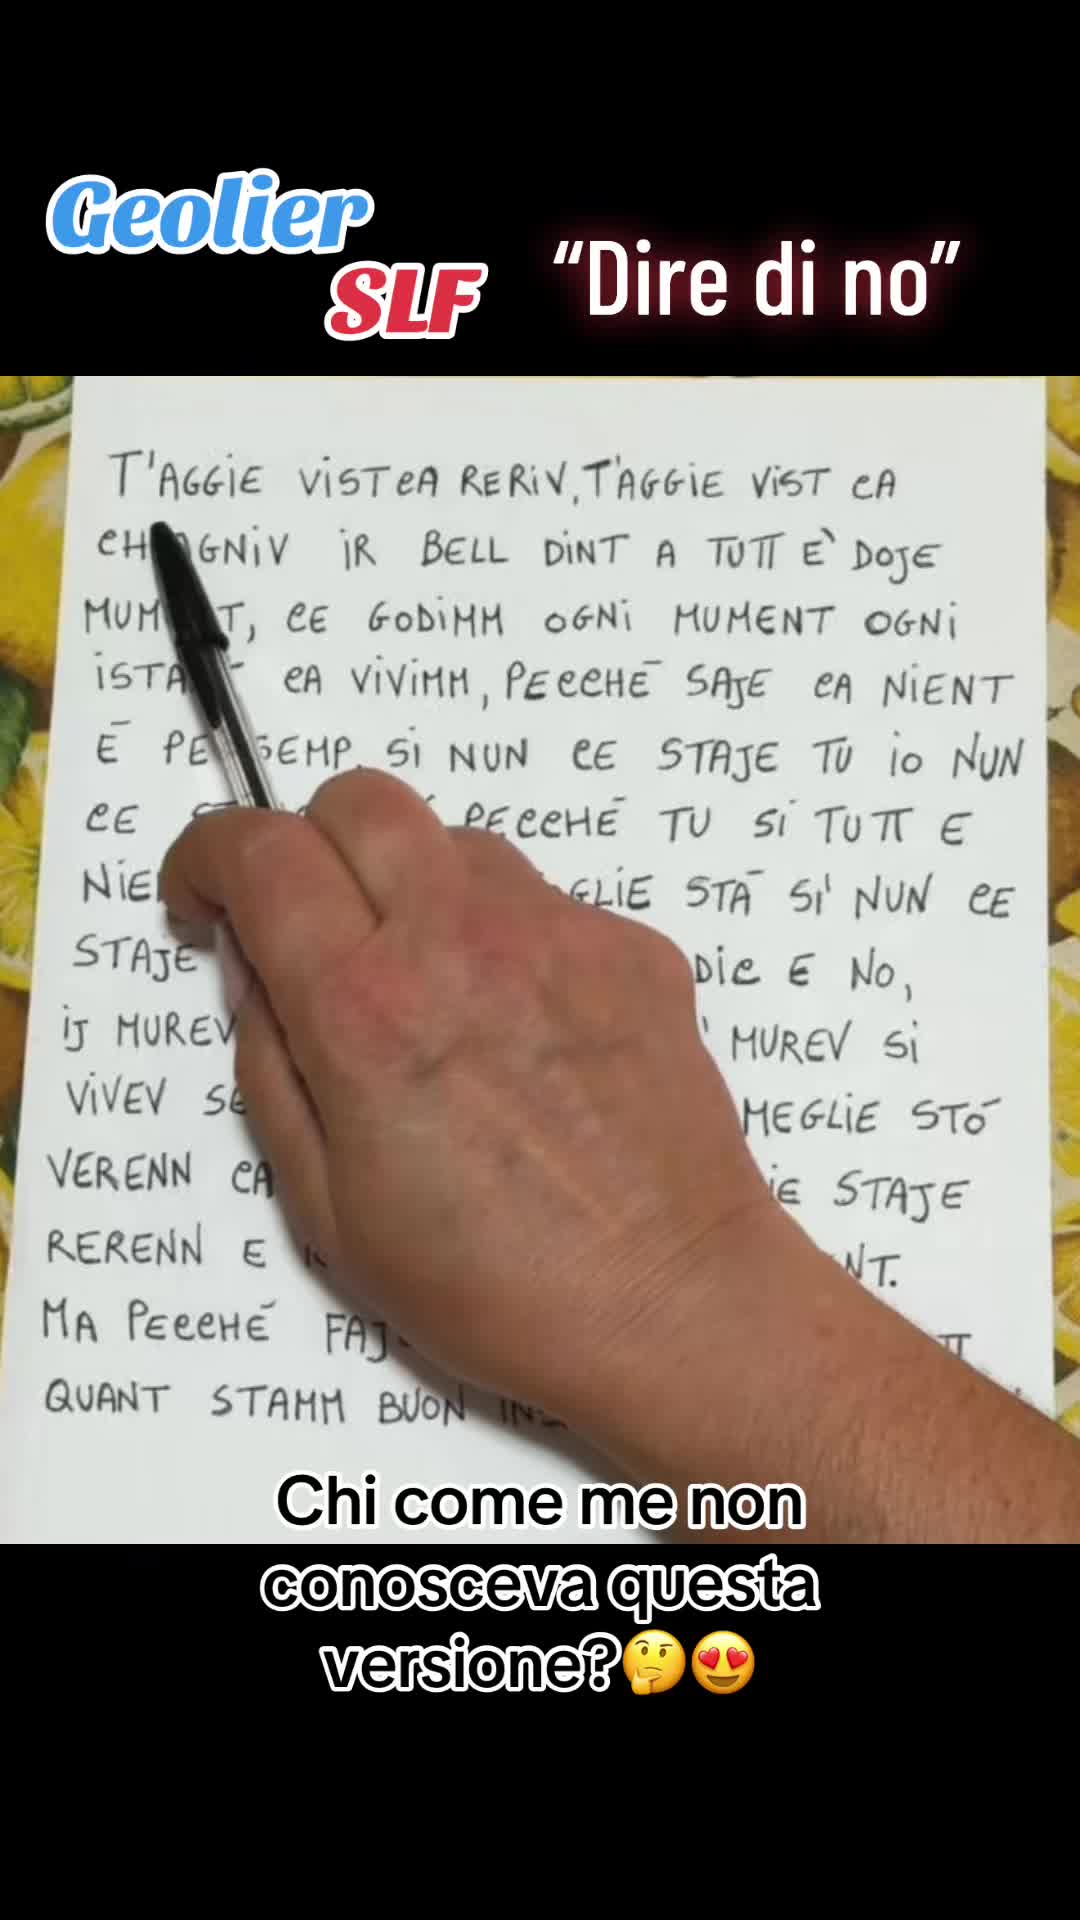 Geolier
SLF
“Dire di no”
T'AGGIE VIST CA RERIV, T'AGGIE VIST CA
IR BELL DINT A TUTT E' DOJE
CE GODIMM OGNI MUMENT OGNI
CA VIVIMM, PECCHÉ SAJE CA NIENT
É SEMP. SI NUN CE STAJE TU IO NUN
CE PECCHÉ TU SI TUTT E
STÁ SI' NUN CE
STAJE DIC E NO,
IJ MUREV MUREV SI
VIVEV MEGLIE STÓ
VERENN CA STAJE
RERENN E
MA PECCHÉ
QUANT STAMM BUON
Chi come me non
conosceva questa
versione?🤔😍